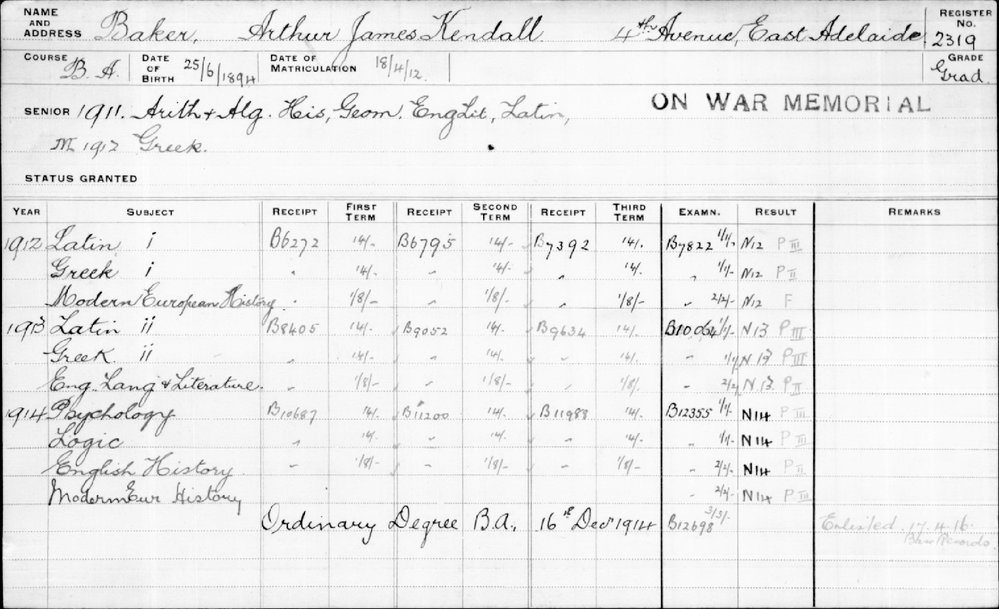 NAME AND ADDRESS Baker, Arthur James Kendall 4th Avenue, East Adelaide REGISTER No. 2319
COURSE B.A. DATE OF BIRTH 25/6/1894 DATE OF MATRICULATION 18/4/12. GRADE Grad.
SENIOR 1911. Arith & Alg. His, Geom. Eng Lit, Latin, ON WAR MEMORIAL
M 1912 Greek.
STATUS GRANTED
YEAR SUBJECT RECEIPT FIRST TERM RECEIPT SECOND TERM RECEIPT THIRD TERM EXAMN. RESULT REMARKS
1912 Latin i B6272 14/- B6795 14/- B7392 14/. B7822 1/1/- N12 P III
Greek i " 14/- " 14/- " 14/. " 1/1/- N12 P II
Modern European History . 1/8/- " 1/8/- " 1/8/- " 2/2/- N12 F
1913 Latin ii B8405 14/- B9052 14/- B9634 14/. B10064 1/1/- N13 P III
Greek ii " 14/- " 14/- " 14/. " 1/1/ N.13 P III
Eng. Lang & Literature. " 1/8/- " 1/8/- " 1/8/- " 2/2/ N.13. P II
1914 Psychology B10687 14/. B11200 14/. B11988 14/. B12355 1/1/- N14 P III
Logic " 14/ " 14/ " 14/. " 1/1/- N14 P III
English History. " 1/8/- " 1/8/- " 1/8/- " 2/2/- N14 P II
Modern Eur History " 2/2/- N14 P III
Ordinary Degree B.A., 16th Decr 1914 B12698 3/3/- Enlisted. 17.4.16.
Records.